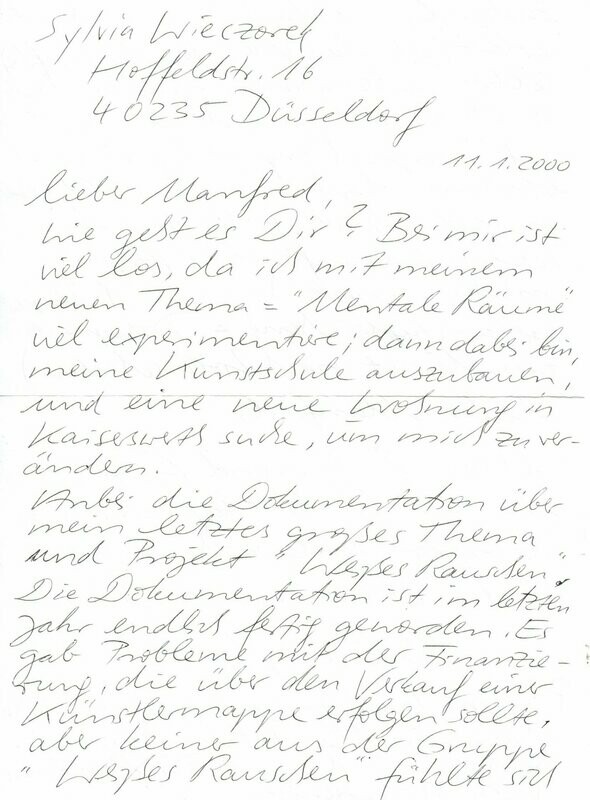 Sylvia Wieczorek
Hoffeldstr. 16
40235 Düsseldorf
11.1.2000
lieber Manfred,
wie geht es Dir? Bei mir ist
viel los, da ich mit meinem
neuen Thema = "Mentale Räume"
viel experimentire; dann dabei bin,
meine Kunstschule auszubauen,
und eine neue Wohnung in
Kaiserswerth suche, um mich zu ver-
ändern.
Anbei die Dokumentation über
mein letztes großes Thema
und Projekt "Weißes Rauschen".
Die Dokumentation ist im letzten
Jahr endlich fertig geworden. Es
gab Probleme mit der Finanzie-
rung, die über den Verkauf einer
Künstlermappe erfolgen sollte,
aber keiner aus der Gruppe
"Weißes Rauschen" fühlte sich